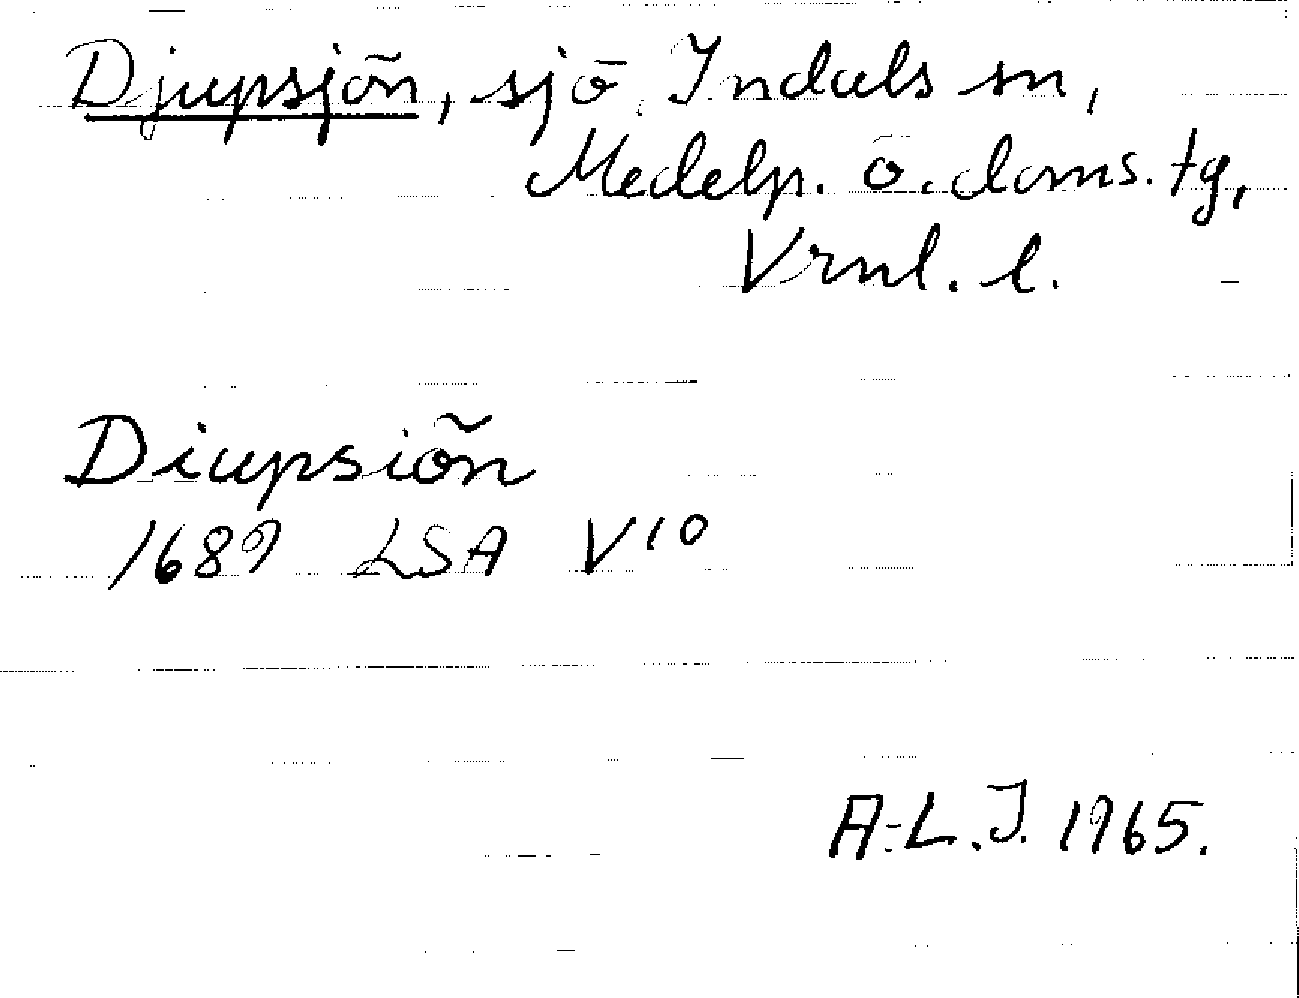 Djupsjön, sjö, Indals sn,
Medelp. ö. doms. tg,
Vrnl. l.
Diupsiön
1689 LSA V 10
A-L. J. 1965.